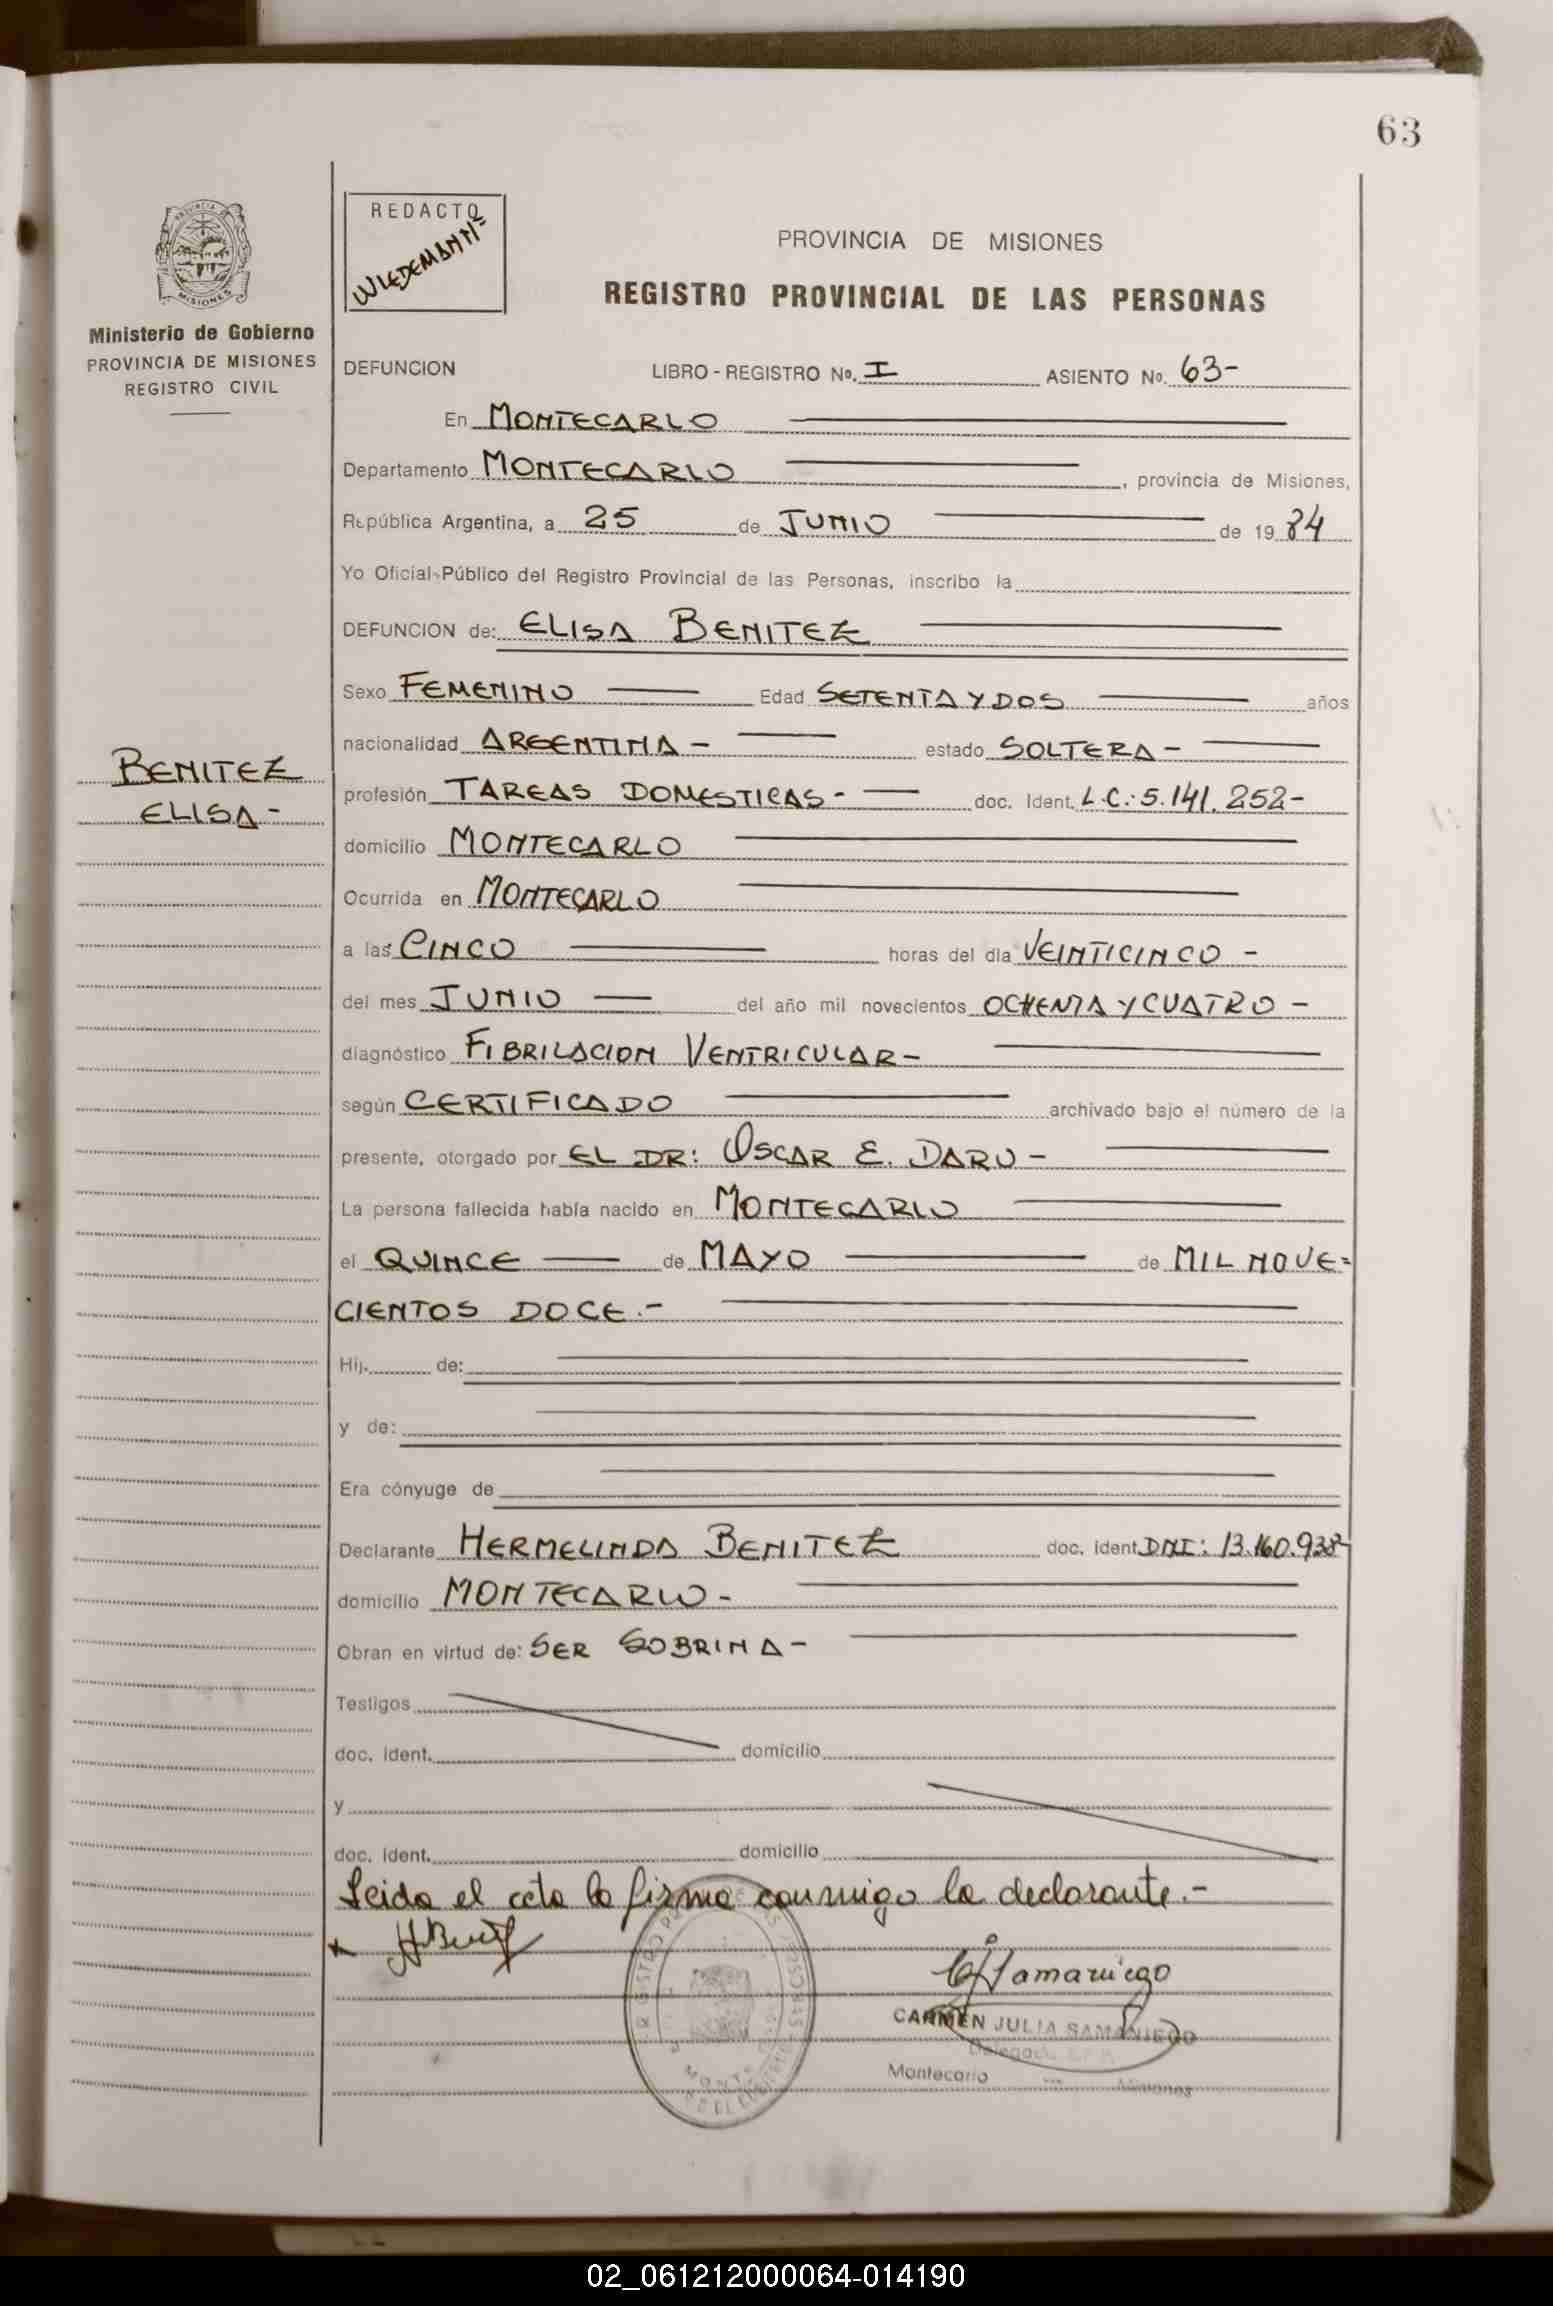 63
PROVINCIA DE
MISIONES
Ministerio de Gobierno
PROVINCIA DE MISIONES
REGISTRO CIVIL
REDACTO
WIEDEMANN
PROVINCIA DE MISIONES
REGISTRO PROVINCIAL DE LAS PERSONAS
DEFUNCION LIBRO - REGISTRO No. I ASIENTO No. 63-
En MONTECARLO
Departamento MONTECARLO, provincia de Misiones,
República Argentina, a 25 de JUNIO de 1984
Yo Oficial Público del Registro Provincial de las Personas, inscribo la
DEFUNCION de: ELISA BENITEZ
Sexo FEMENINO Edad SETENTA Y DOS años
nacionalidad ARGENTINA - estado SOLTERA -
BENITEZ
ELISA -
profesión TAREAS DOMESTICAS - doc. Ident. L.C.: 5.141.252-
domicilio MONTECARLO
Ocurrida en MONTECARLO
a las CINCO horas del día VEINTICINCO -
del mes JUNIO del año mil novecientos OCHENTA Y CUATRO -
diagnóstico FIBRILACION VENTRICULAR -
según CERTIFICADO archivado bajo el número de la
presente, otorgado por EL DR: OSCAR E. DARU -
La persona fallecida había nacido en MONTECARLO
el QUINCE de MAYO de MIL NOVE=
CIENTOS DOCE.-
Hij. de:
y de:
Era cónyuge de
Declarante HERMELINDA BENITEZ doc. ident. DNI: 13.160.938-
domicilio MONTECARLO -
Obran en virtud de: SER SOBRINA -
Testigos
doc. ident. domicilio
y
doc. ident. domicilio
Leida el acta la firma conmigo la declarante.-
CJSamaniego
CARMEN JULIA SAMANIEGO
Montecarlo Misiones
02_061212000064-014190